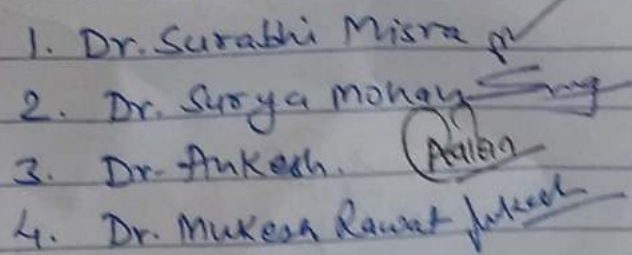 1. Dr. Surabhi Misra
2. Dr. Surya Mohan
3. Dr. Ankesh.
4. Dr. Mukesh Rawat Mukesh